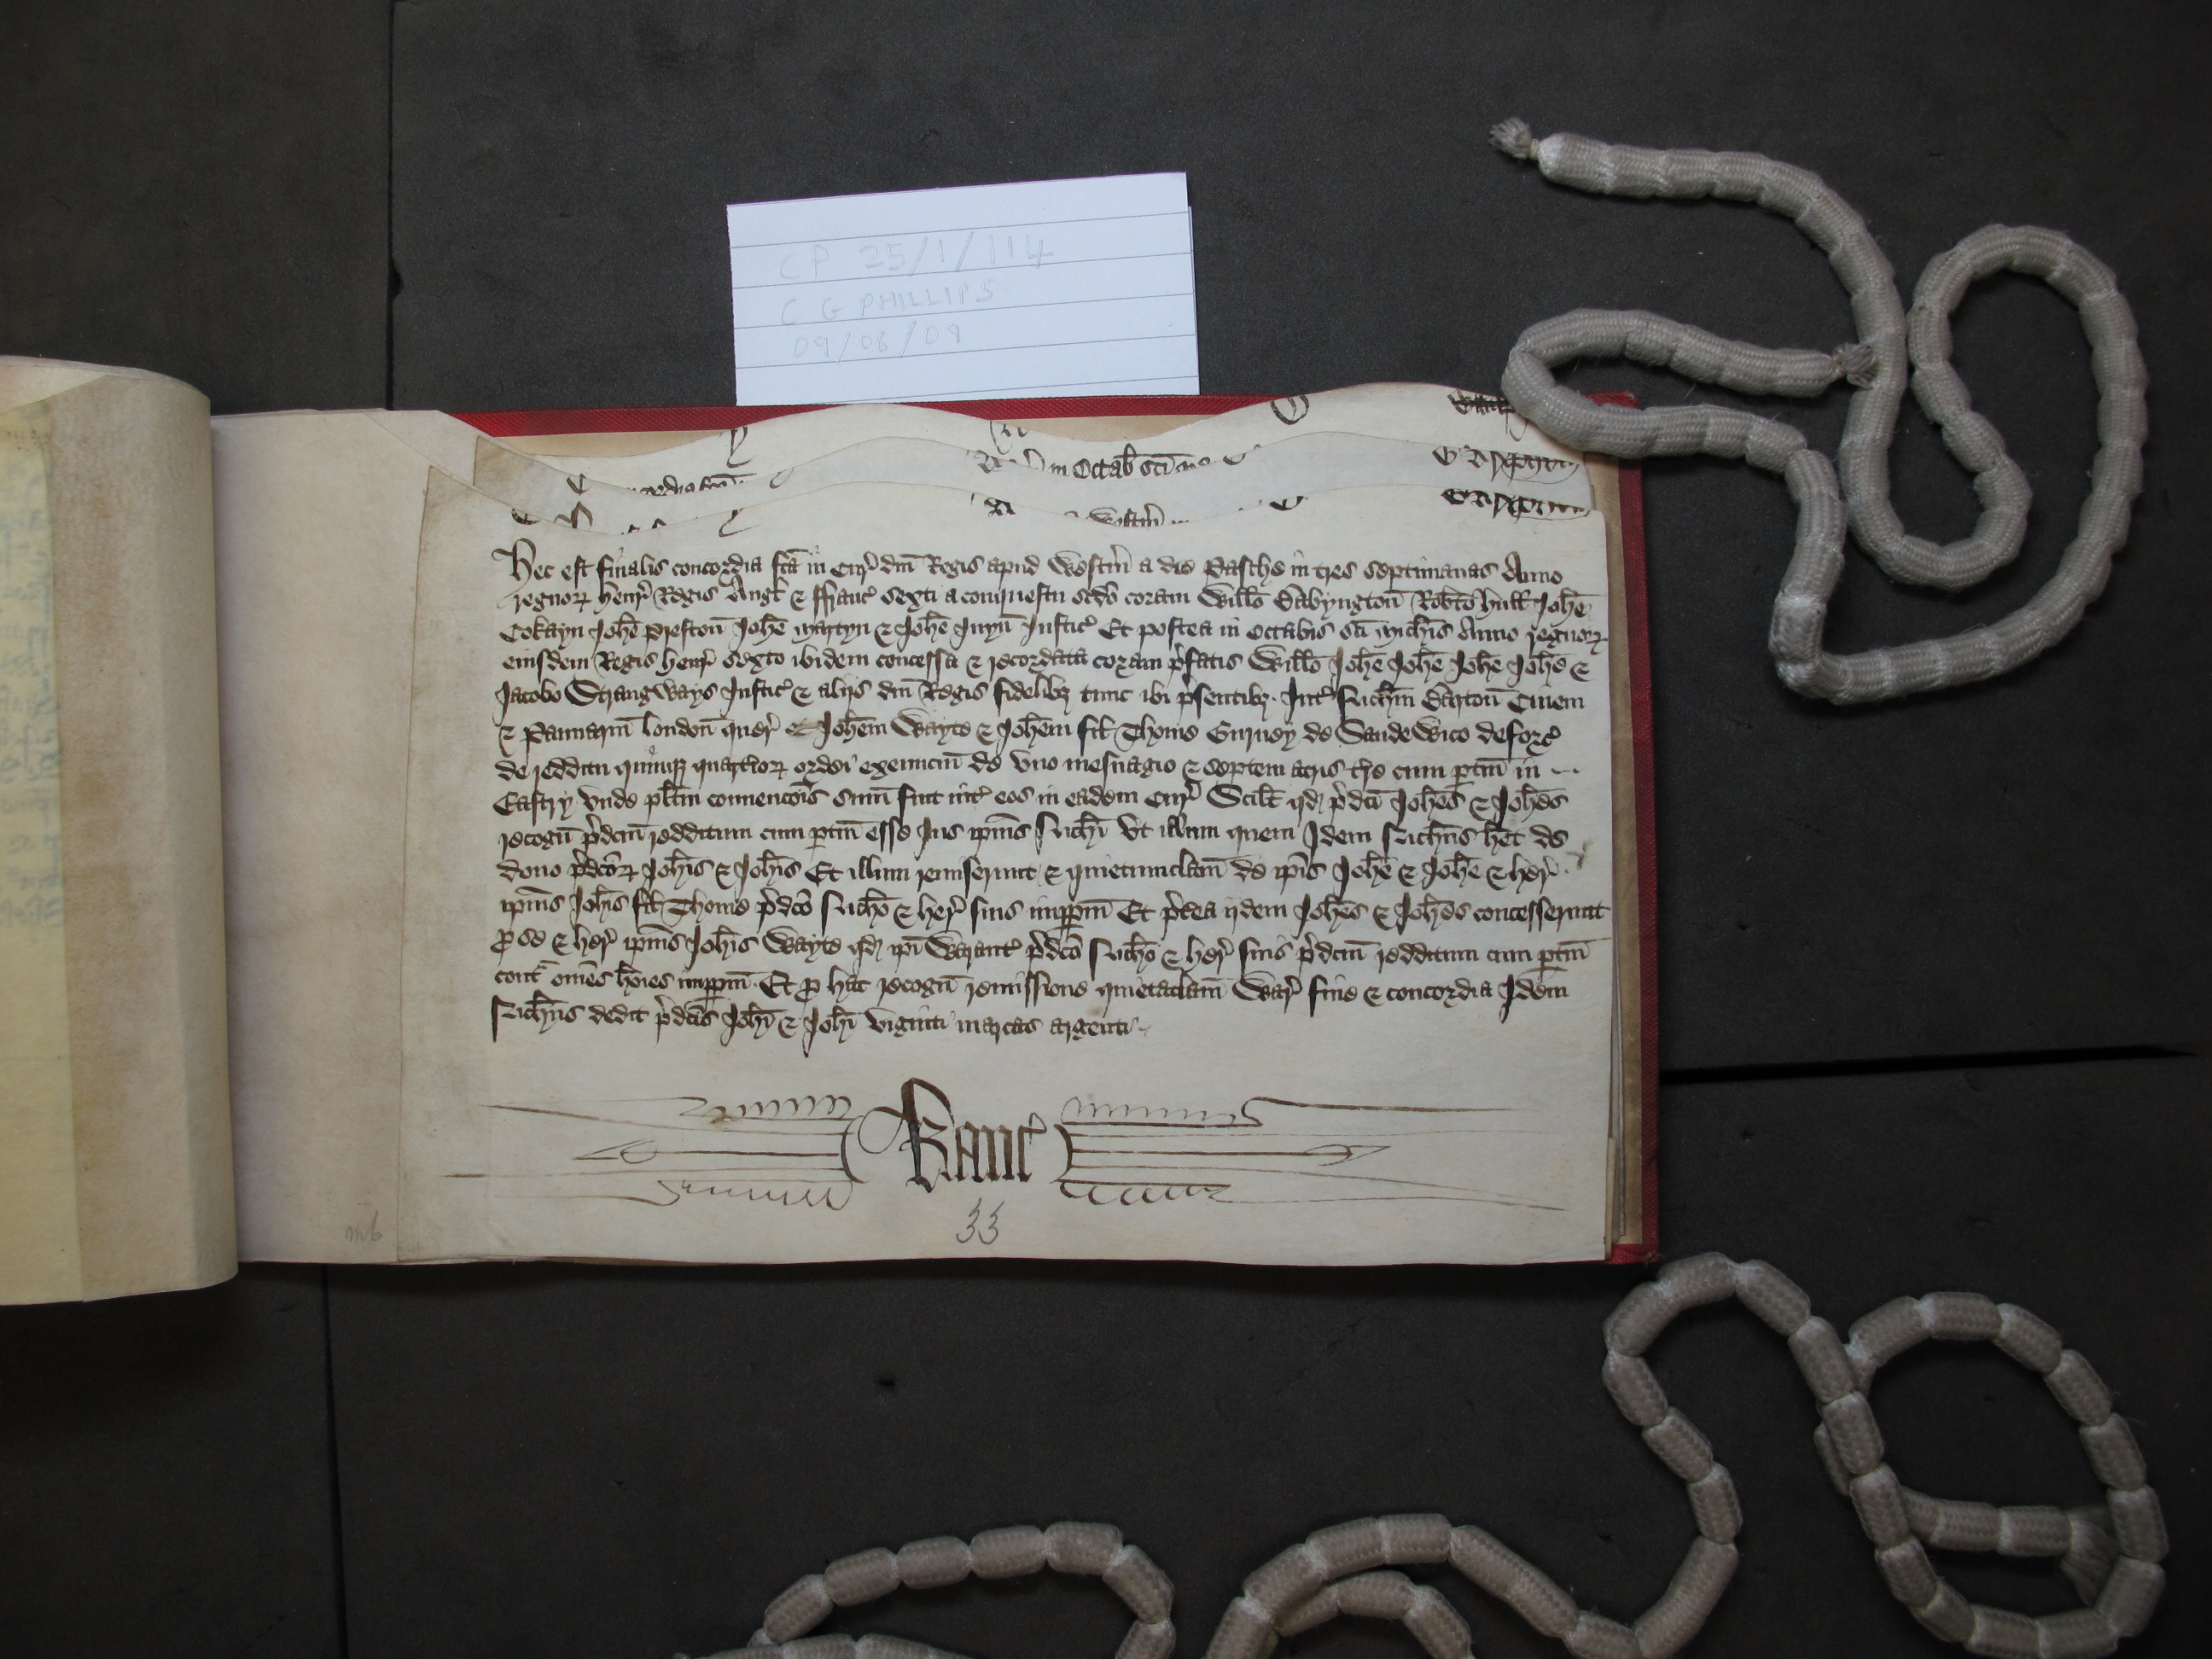 CP 25/1/114
C G PHILLIPS
09/06/09
in Octab sci
Hec est finalis concordia fca in Cur dni Regis apud Westm a die Pasche in tres septimanas Anno
regnor Henr Regis Angl & Franc sexti a conquestu scdo coram Willo Babyngton Robto Hull Johe
Cokayn Johe Preston Johe Martyn & Johe Juyn Justic Et postea in Octabis sci Michis Anno regnor
eiusdem Regis Henr sexto ibidem concessa & recordata coram pfatis Willo Johe Johe Johe Johe &
Jacobo Strangways Justic & alijs dni Regis fidelibz tunc ibi psentibz Int Ricm Barton Civem
& Pannarm London quer & Johem Wayte & Johem fil Thome Gurney de Sandewico deforc
de redditu quinqz quartior ordei exeuncium de uno mesuagio & septem acris tre cum ptin in
Eastry unde plitm convencois sum fuit int eos in eadem Cur Scilt qd pdci Johes & Johes
recogn pdcm redditum cum ptin esse Jus ipius Rici Ut illum quem Idem Ricus het de
dono pdcor Johis & Johis Et illum remiserunt & quietumclam de ipis Johe & Johe & her
ipius Johis fil Thome pdco Rico & her suis imppm Et pterea ijdem Johes & Johes concesserunt
p se & her ipius Johis Wayte qd ipi Warant pdco Rico & her suis pdcm redditum cum ptin
cont omes hoies imppm Et p hac recogn remissione quietaclam War fine & concordia Idem
Ricus dedit pdcis Johi & Johi viginti marcas argenti
Kanc
33